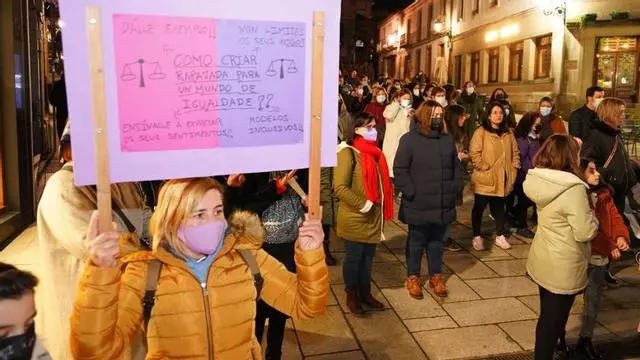 DALLE EXEMPLO!!
NON LIMITES
OS SEUS XOGOS!
¿¿ COMO CRIAR
RAPAZADA PARA
UN MUNDO DE
IGUALDADE ??
ENSÍNALLE A EXPRESAR
OS SEUS SENTIMENTOS!!
MODELOS
INCLUSIVOS!!